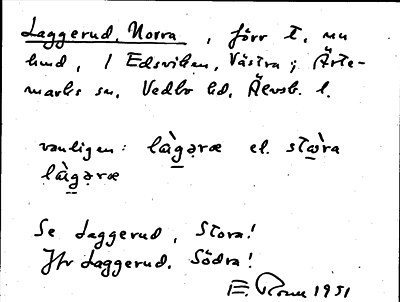 Laggerud, Norra, förr t. nu
hmd, / Edsviken, Västra; Ärte-
marks sn. Vedbo hd, Älvsb. l.
vanligen: là̱gə̣ræ el. stὼ̱ra
là̱gə̣ræ
Se Laggerud, Stora!
Jfr Laggerud, Södra!
E. 1951